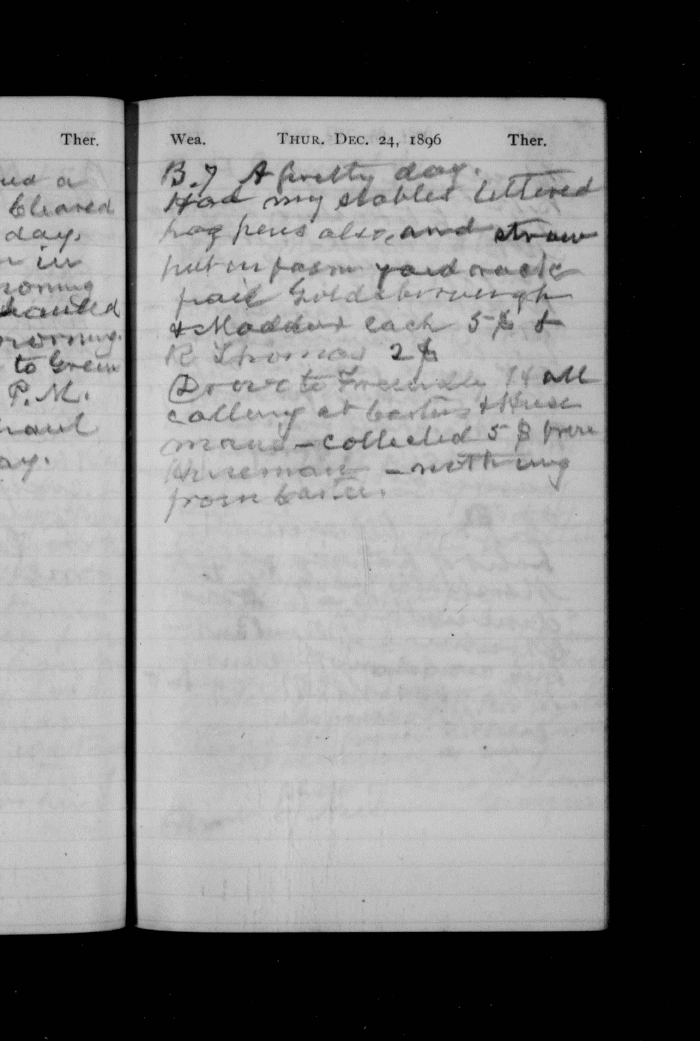 Ther.
Cleared
day.
in
morning
hauled
morning.
to Green
P.M.
haul
Wea. THUR. DEC. 24, 1896 Ther.
B. 7 A pretty day.
Had my stables littered
hog pens also, and straw
put in farm yard rack
paid Goldsborough
& Maddox each 5$ &
R Thomas 2$
Drove to Friendly Hall
calling at Carters & Huse
mans - collected 5$ from
Huseman - nothing
from Carter.